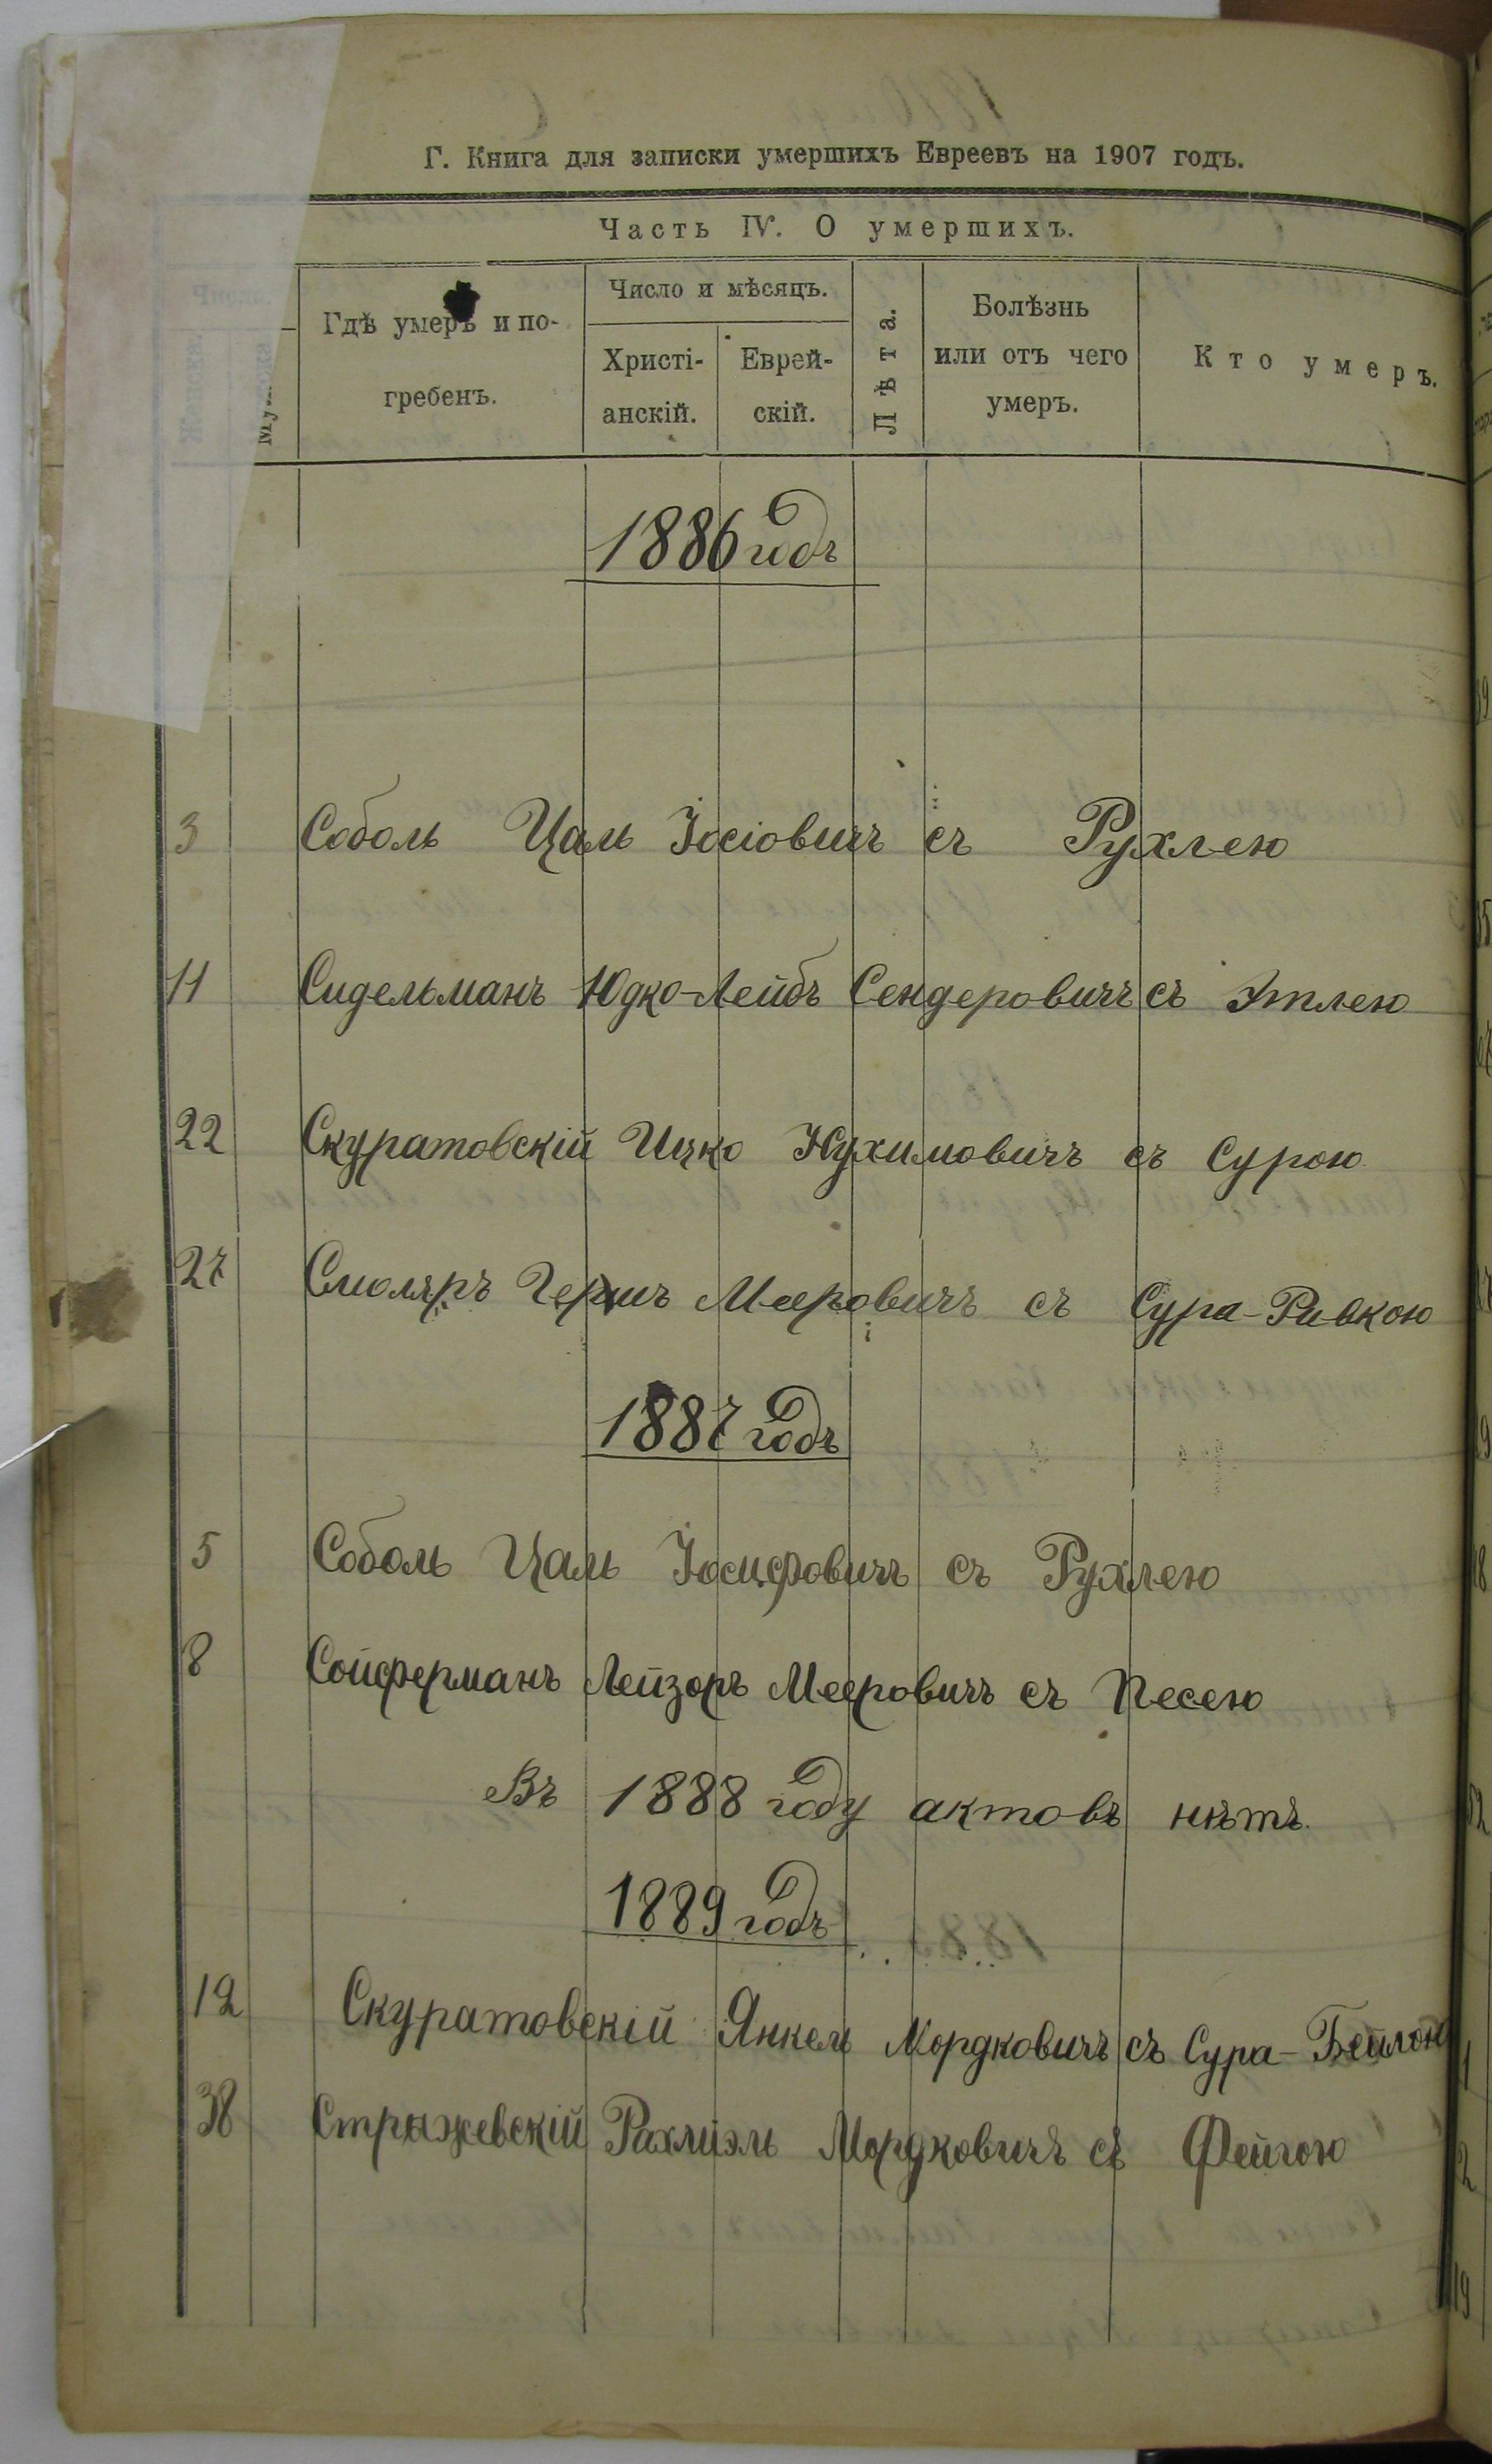 Г. Книга для записки умершихъ Евреевъ на 1907 годъ.
Часть IV. О умершихъ.
Число.
Гдѣ умеръ и по-
гребенъ.
Число и мѣсяцъ.
Христі-
анскій.
Еврей-
скій.
Лѣта.
Болѣзнь
или отъ чего
умеръ.
Кто умеръ.
1886 годъ
3 Соболь Цаль Іосіовичъ съ Рухлею
11 Сидельманъ Юдко-Лейбъ Сендеровичъ съ Этлею
22 Скуратовскій Ицко Нухимовичъ съ Сурою
27 Смоляръ Гершъ Мееровичъ съ Сура-Ривкою
1887 годъ
5 Соболь Цаль Іосифовичъ съ Рухлею
8 Сойферманъ Лейзоръ Мееровичъ съ Песею
Въ 1888 году актовъ нѣтъ.
1889 годъ
12 Скуратовскій Янкель Мордковичъ съ Сура-Бейлою
38 Стрыжевскій Рахмиэль Мордковичъ съ Фейгою